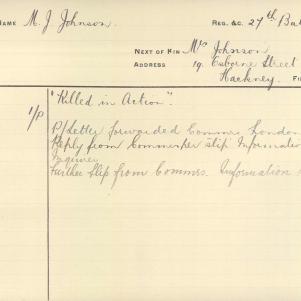 NAME M. J. Johnson. REG. &C. 27th Bat
NEXT OF KIN Mrs Johnson
ADDRESS 19, Osborne Street
Hackney. FI
"Killed in Action".
1/P P/Letter forwarded Commrs London
Reply from Commrs per slip Informatio
Inquiries
Further slip from Commrs. Information